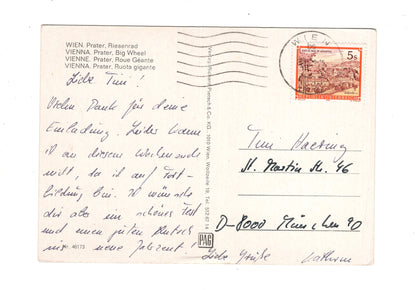 WIEN. Prater, Riesenrad
VIENNA. Prater, Big Wheel
VIENNE. Prater, Roue Géante
VIENNA. Prater, Ruota gigante
Liebe Tini!
Vielen Dank für deine
Einladung. Leider kann
ich an diesem Wochenende
nicht, da ich auf Fort-
bildung bin. Ich wünsche
dir also ein schönes Fest
und einen guten Rutsch
ins neue Jahrzent!
46173
Liebe Grüße
Kathrin
Tini
St. Martin Str. 46
D-8000 München 90
WIEN
5 S
REPUBLIK ÖSTERREICH
1010 Wien, Wollzeile
PAG